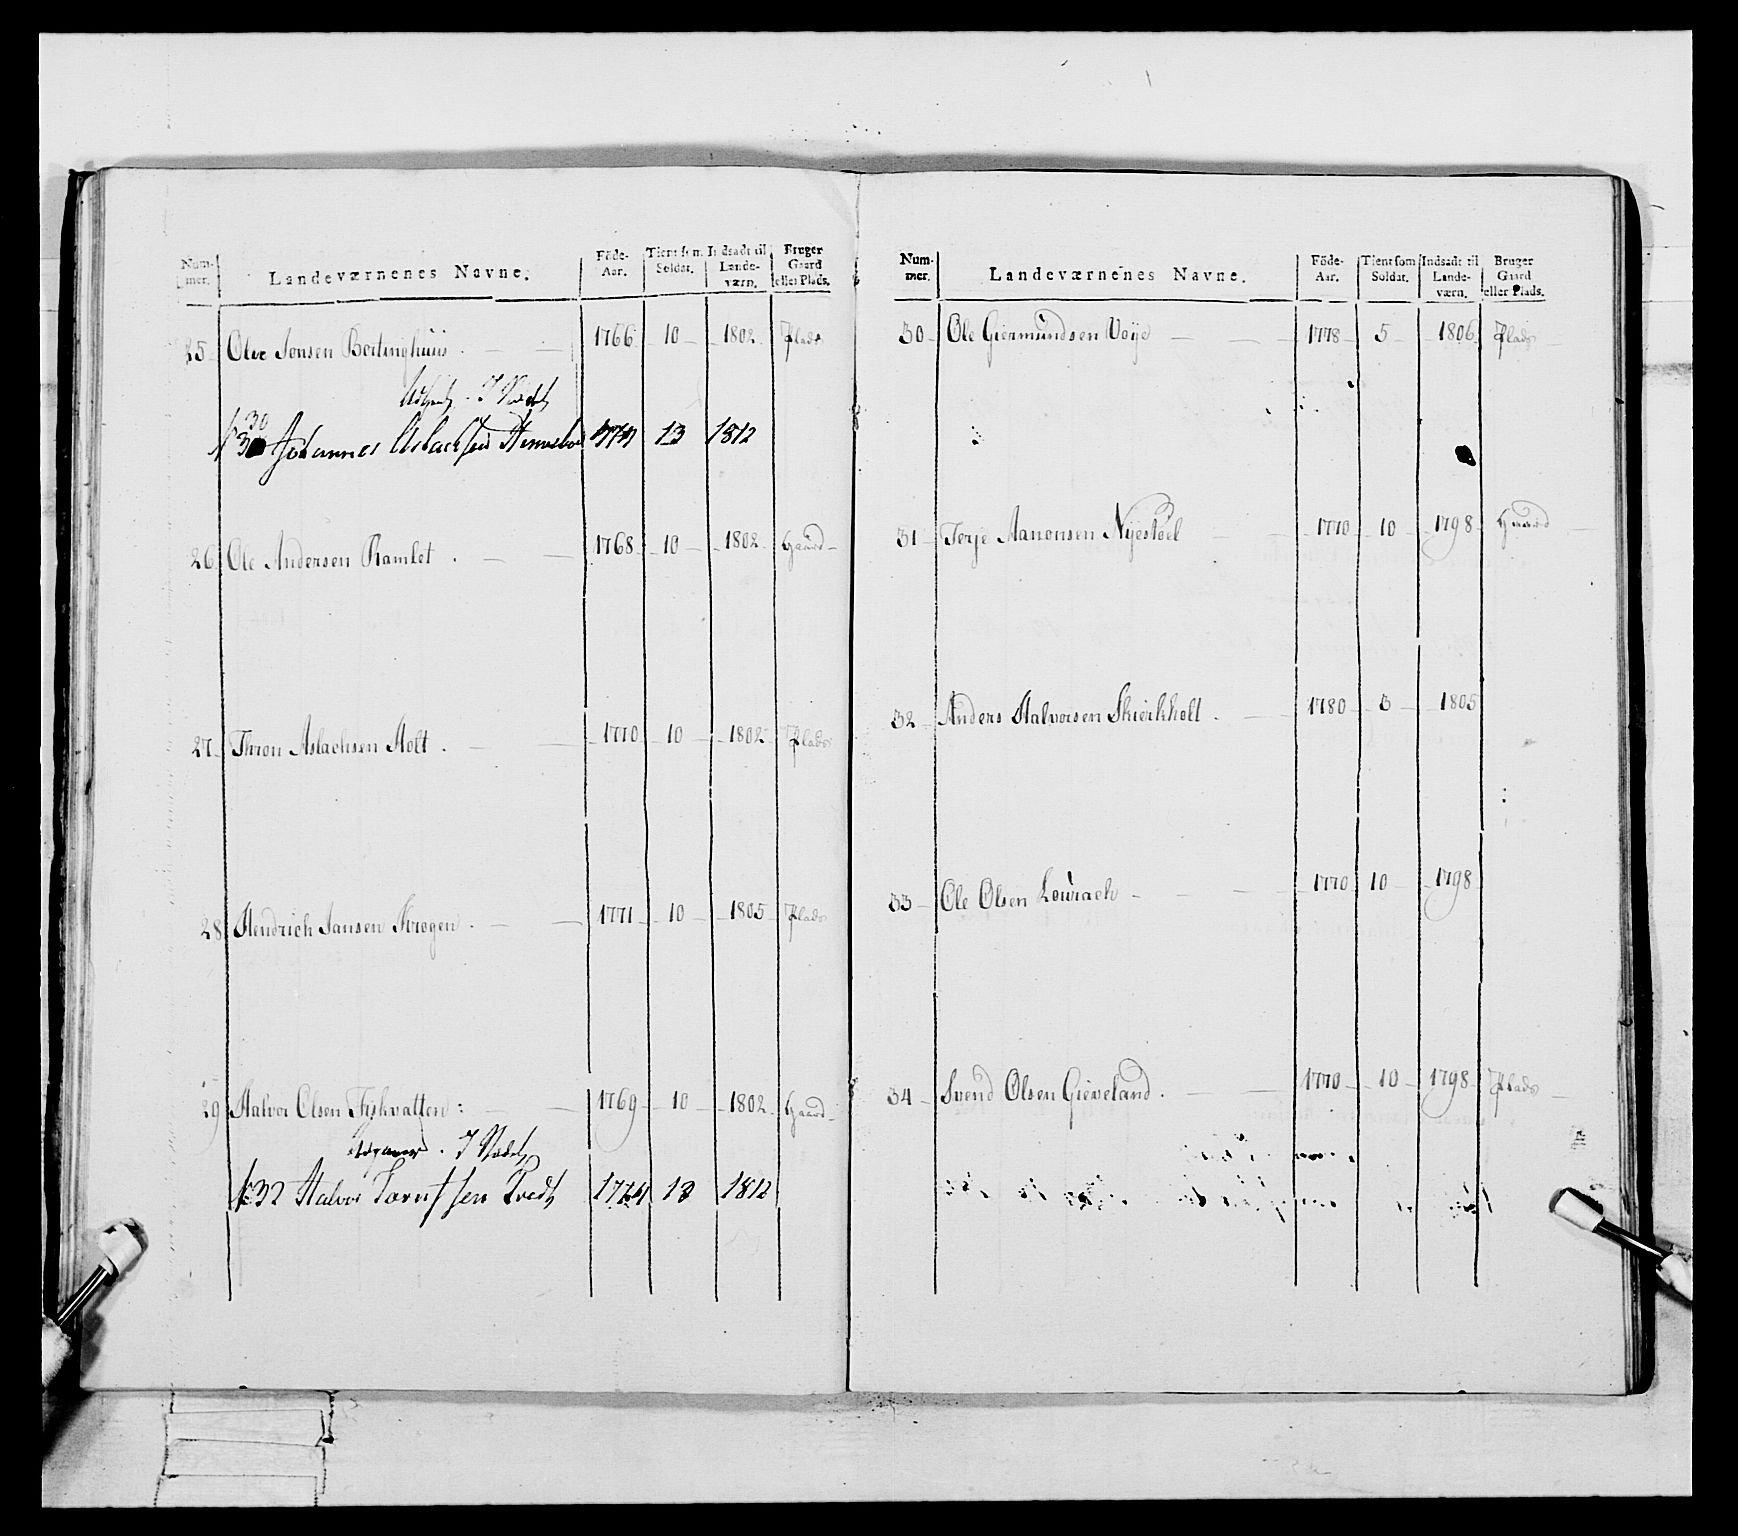 Num- mer. Landeværnenes Navne. Föde- Aar. Tient som Soldat. Indsadt til Lande- værn. Bruger Gaard eller Plads.
25 Olve Jonsen Bertinghuus 1766 10 1802 Plads
I Stedet
N 30 Johannes Aslachsen 13 1812
26 Ole Andersen Ramlet 1768 10 1802 Gaard
27 Thron Aslachsen Holt 1770 10 1802 Plads
28 Hendrich Jansen Krogen 1771 10 1805 Plads
29 Halvor Olsen Fishvatten 1769 10 1802 Gaard
I Stedet
N 32 Halvor 1774 13 1812
Num- mer. Landeværnenes Navne. Föde- Aar. Tient som Soldat. Indsadt til Lande- værn. Bruger Gaard eller Plads.
30 Ole Giermundsen Voije 1778 5 1806 Plads
31 Terje Aanonsen Nyestöel 1770 10 1798 Gaard
32 Anders Halvorsen Skierkholt 1780 3 1805
33 Ole Olsen Lourach 1770 10 1798
34 Svend Olsen Gieveland 1770 10 1798 Plads